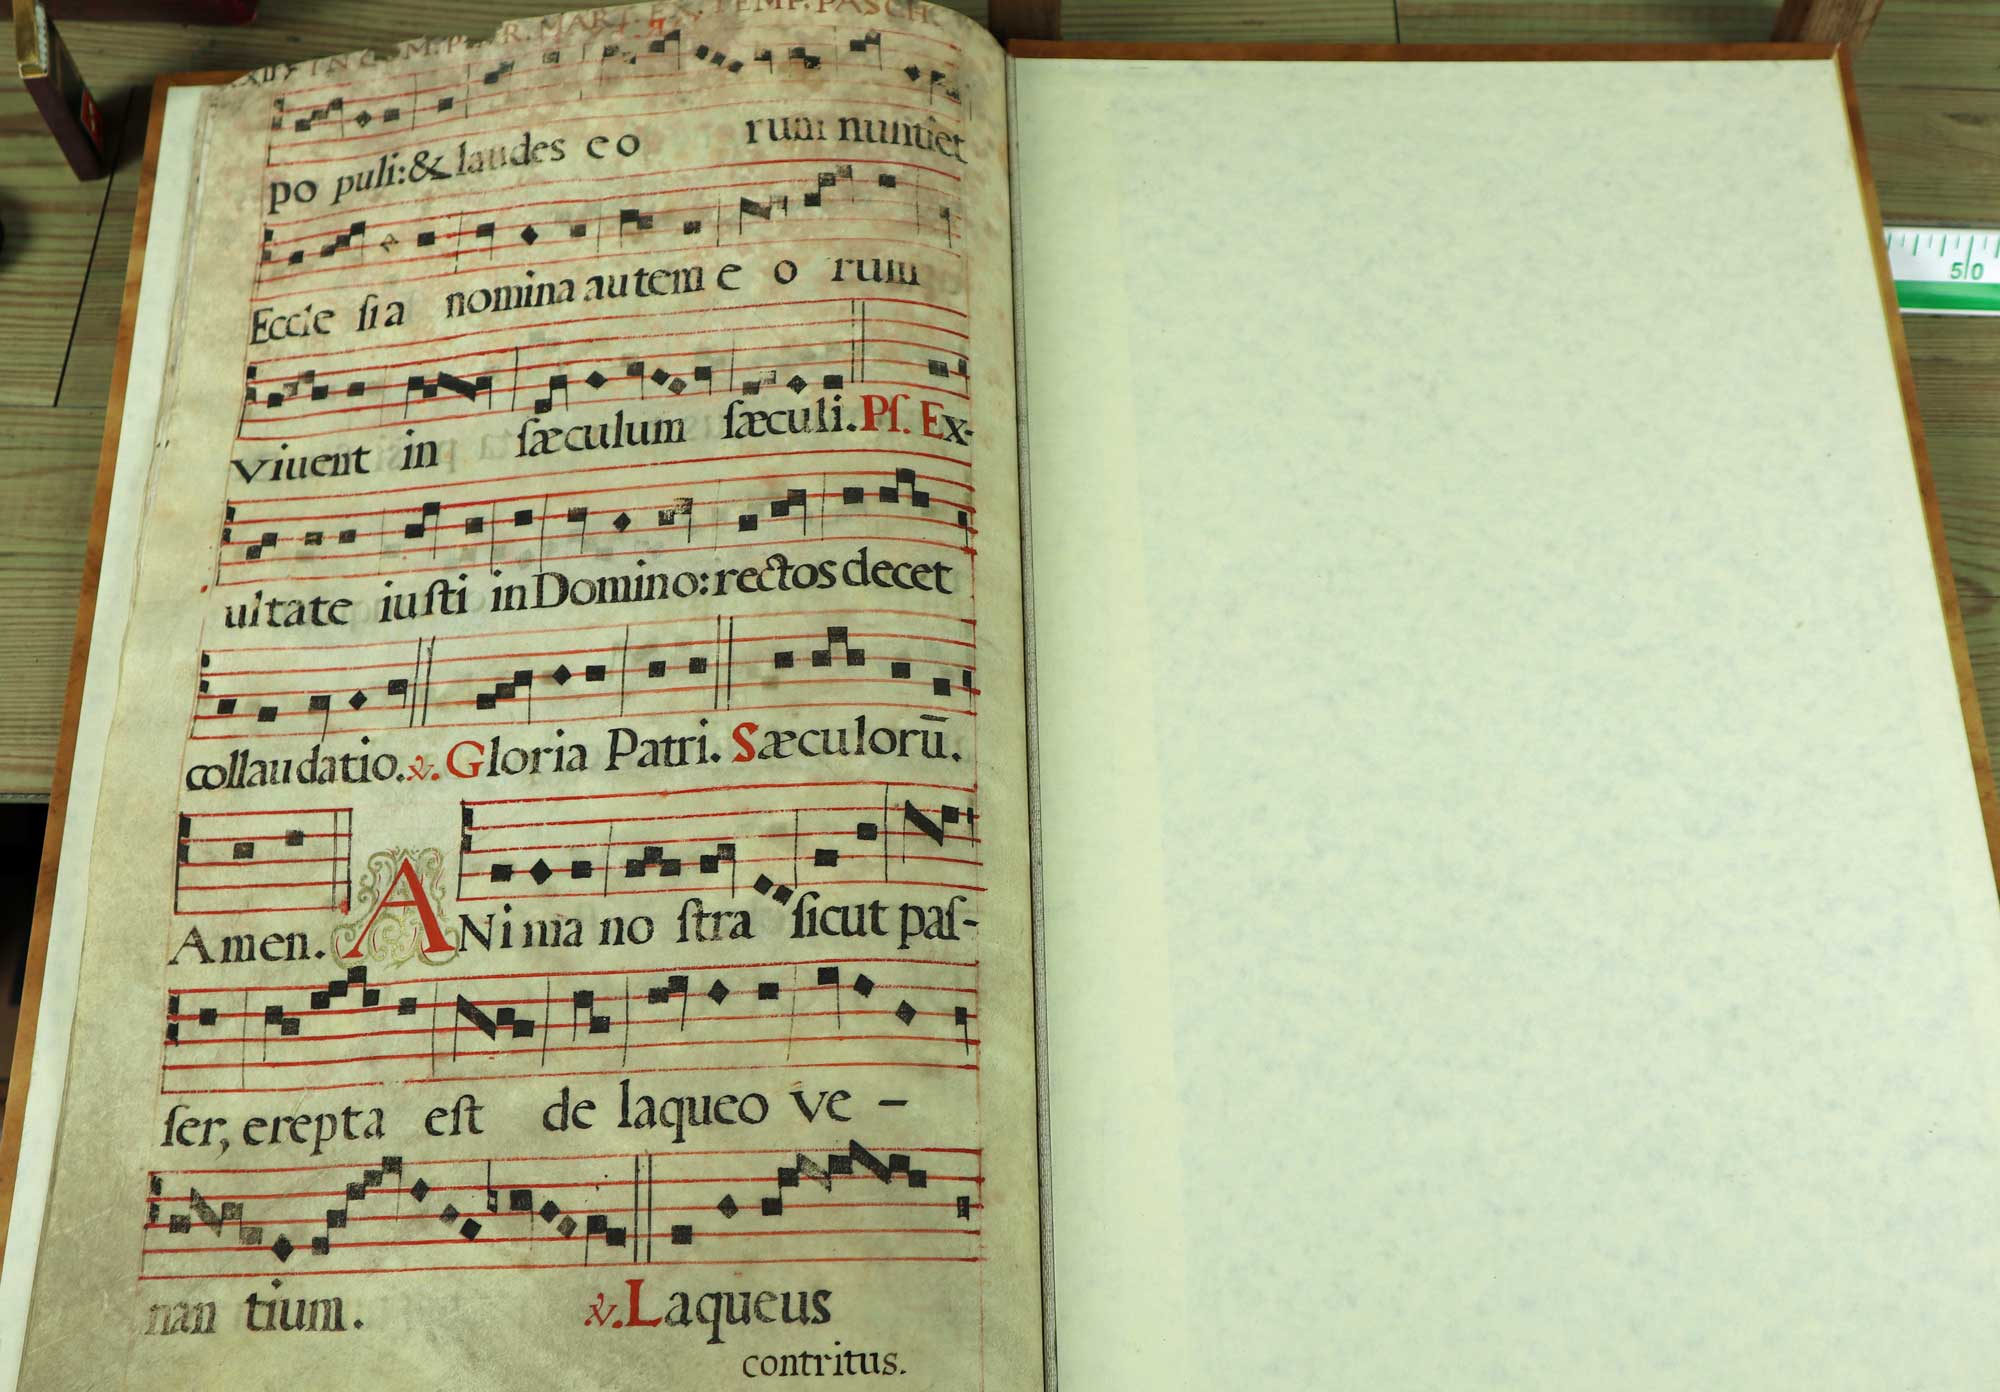 IN COM. PLUR. MART. EX. TEMP. PASCH.
po puli: & laudes eo rum nuntiet
Eccle ſia nomina autem e o rum
viuent in ſæculum ſæculi. Pſ. Ex-
ultate iuſti in Domino: rectos decet
collaudatio. ℣. Gloria Patri. Sæculorū.
Amen. ANima no ſtra ſicut paſ-
ſer, erepta eſt de laqueo ve -
nan tium. ℣. Laqueus
contritus.
50